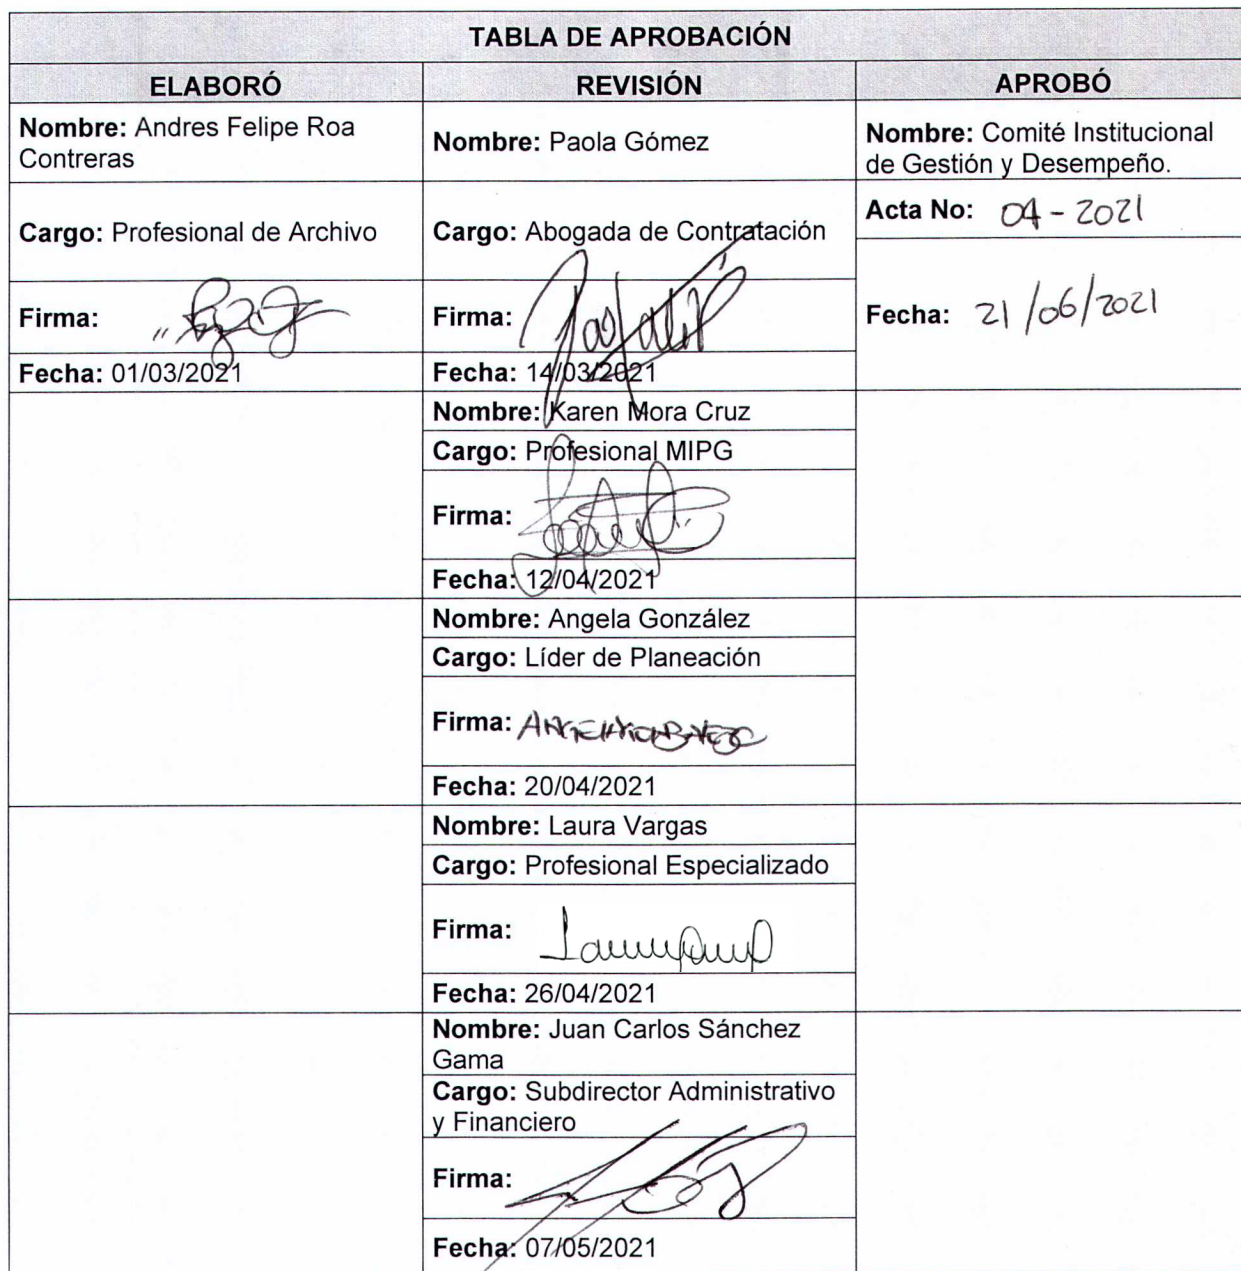 TABLA DE APROBACIÓN
ELABORÓ
REVISIÓN
APROBÓ
Nombre: Andres Felipe Roa
Contreras
Nombre: Paola Gómez
Nombre: Comité Institucional
de Gestión y Desempeño.
Cargo: Profesional de Archivo
Cargo: Abogada de Contratación
Acta No: 04-2021
Firma:
Firma:
Fecha: 21/06/2021
Fecha: 01/03/2021
Fecha: 14/03/2021
Nombre: Karen Mora Cruz
Cargo: Profesional MIPG
Firma:
Fecha: 12/04/2021
Nombre: Angela González
Cargo: Líder de Planeación
Firma:
Fecha: 20/04/2021
Nombre: Laura Vargas
Cargo: Profesional Especializado
Firma:
Fecha: 26/04/2021
Nombre: Juan Carlos Sánchez
Gama
Cargo: Subdirector Administrativo
y Financiero
Firma:
Fecha: 07/05/2021